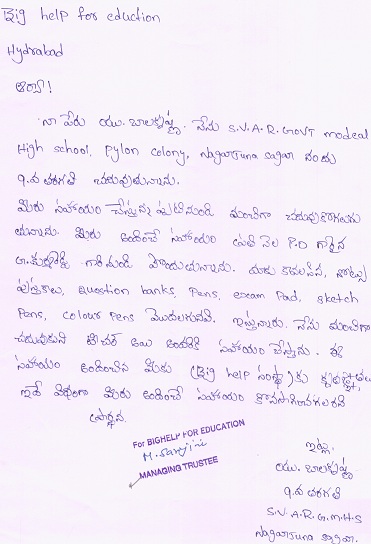 Big help for eduction
Hydrabad
ఆర్యా!
నా పేరు యు. బాలకృష్ణ. నేను S.V.A.R. GOVT modeal
High school, Pylon colony, Nagarjuna sagar నందు
9.వ తరగతి చదువుచున్నాను.
మీరు సహాయం చేస్తున్న పటినుండి మంచిగా చదువుకోగలుగు
తున్నాను. మీరు అందించే సహాయం ప్రతి నెల P.D గారైన
గారినుండి పొందుతున్నాను. నాకు కావలసిన, నోట్సు
పుస్తకాలు, Question banks, Pens, exam Pad, sketch
Pens, colour Pens మొదలగునవి. ఇస్తున్నారు. నేను మంచిగా
చదువుకుని టీచర్ అయి అందరికి సహాయం చేస్తాను. ఈ
సహాయం అందించిన మీకు (Big help సంస్థ) కు కృతజ్ఞతలు
ఇదే విధంగా మీరు అందించే సహాయం కొనసాగించగలరని
ప్రార్థన.
For BIGHELP FOR EDUCATION
MANAGING TRUSTEE
ఇట్లు
యు. బాలకృష్ణ
9.వ తరగతి
S.V.A.R.G.M.H.S
Nagarjuna sagar.